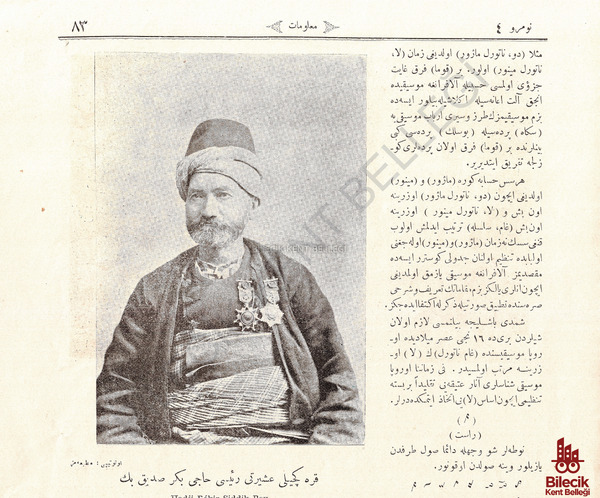 نومرو ٤
معلومات
٨٣
مثلا (دو، ناتورل ماژور) اولدیغی زمان (لا،
ناتورل مینور) اولور. بر (قوما) فرق غایت
جزؤی اولمسی حسبیله آلافرانغه موسیقیده
انجق آلت اعانه‌سیله اکلاشیله‌بیلور ایسه‌ده
بزم موسیقیمزك طرز وسیری ارباب موسیقی‌یه
(سکاه) پرده‌سیله (بوسلك) پرده‌سی کبی
بینلرنده بر (قوما) فرق اولان پرده‌لری کو-
زلجه تفریق ایتدیریر.
هر سس حسابه کوره (ماژور) و (مینور)
اولدیغی ایچون (دو، ناتورل ماژور) اوزرینه
اون بش و (لا، ناتورل مینور) اوزرینه
اون بش (غام، سلسله) ترتیب ایدلمش اولوب
قنغی سسك نه زمان (ماژور) و (مینور) اوله‌جغنی
اولبابده تنظیم اولنان جدولی کوسترر ایسه‌ده
مقصدیمز آلافرانغه موسیقی یازمق اولمدیغی
ایچون انلری یالکز بزم مقاماتك تعریف و شرحی
صره‌سنده تطبیق صورتیله ذکر ایله اکتفا ایده‌جکز.
شمدی باشلیجه بیلنمسی لازم اولان
شیلردن بری‌ده ١٦ نجی عصر میلادیده او-
روپا موسیقیسنده (غام ناتورل) ك (لا) او-
زرینه مرتب اولمسیدر. نی زماننا اوروپا
موسیقی شناسلری آثار عتیقه‌نی تقلیداً بر بسته
تنظیمی ایچون اساس (لا)یی اتخاذ ایتمکده‌درلر.
(راست)
نوطه‌لر شو وجهله دائما صول طرفدن
یازیلور وینه صولدن اوقونور.
قره کچیلی عشیرتی رئیسی حاجی بکر صدیق بك
Hadji Békir Siddik Bey
BİLECİK KENT BELLEĞİ
Bilecik
Kent Belleği